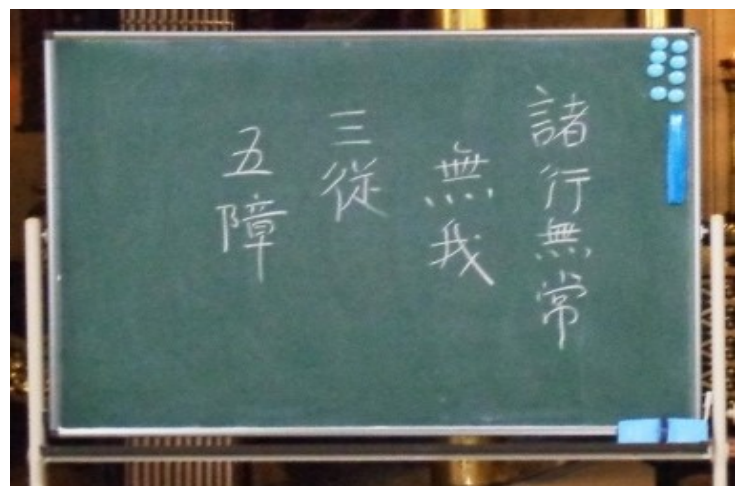 諸行無常
無我
三従
五障